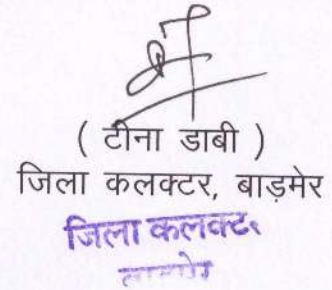 ( टीना डाबी )
जिला कलक्टर, बाड़मेर
जिला कलक्टर